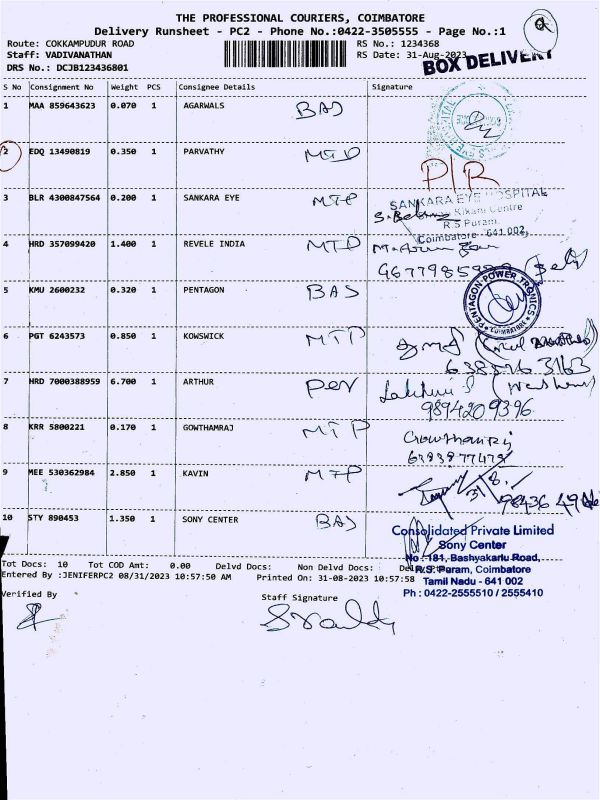 THE PROFESSIONAL COURIERS, COIMBATORE
Delivery Runsheet - PC2 - Phone No.:0422-3505555 - Page No.:1
Route: COKKAMPUDUR ROAD RS No.: 1234368
Staff: VADIVANATHAN RS Date: 31-Aug-2023
DRS No.: DCJB123436801 BOX DELIVERY
S No Consignment No Weight PCS Consignee Details Signature
1 MAA 859643623 0.070 1 AGARWALS BAS
2 EDQ 13490819 0.350 1 PARVATHY MTD P/R
3 BLR 4300847564 0.200 1 SANKARA EYE MTP
SANKARA EYE HOSPITAL
Kikani Centre
R S Puram,
Coimbatore - 641 002,
4 HRD 357099420 1.400 1 REVELE INDIA MTD
5 KMU 2600232 0.320 1 PENTAGON BAS
PENTAGON POWER TRONICS
COIMBATORE
6 PGT 6243573 0.850 1 KOWSWICK MTP
7 HRD 7000388959 6.700 1 ARTHUR Pen
Lakshmi
9894209396
8 KRR 5800221 0.170 1 GOWTHAMRAJ MTP
Gowthamraj
9 MEE 530362984 2.850 1 KAVIN MTP
31/8
10 STY 890453 1.350 1 SONY CENTER BAS
Consolidated Private Limited
Sony Center
No : 181, Bashyakarlu Road,
R.S. Puram, Coimbatore
Tamil Nadu - 641 002
Ph : 0422-2555510 / 2555410
Tot Docs: 10 Tot COD Amt: 0.00 Delvd Docs: Non Delvd Docs:
Entered By :JENIFERPC2 08/31/2023 10:57:50 AM Printed On: 31-08-2023 10:57:58
Verified By Staff Signature